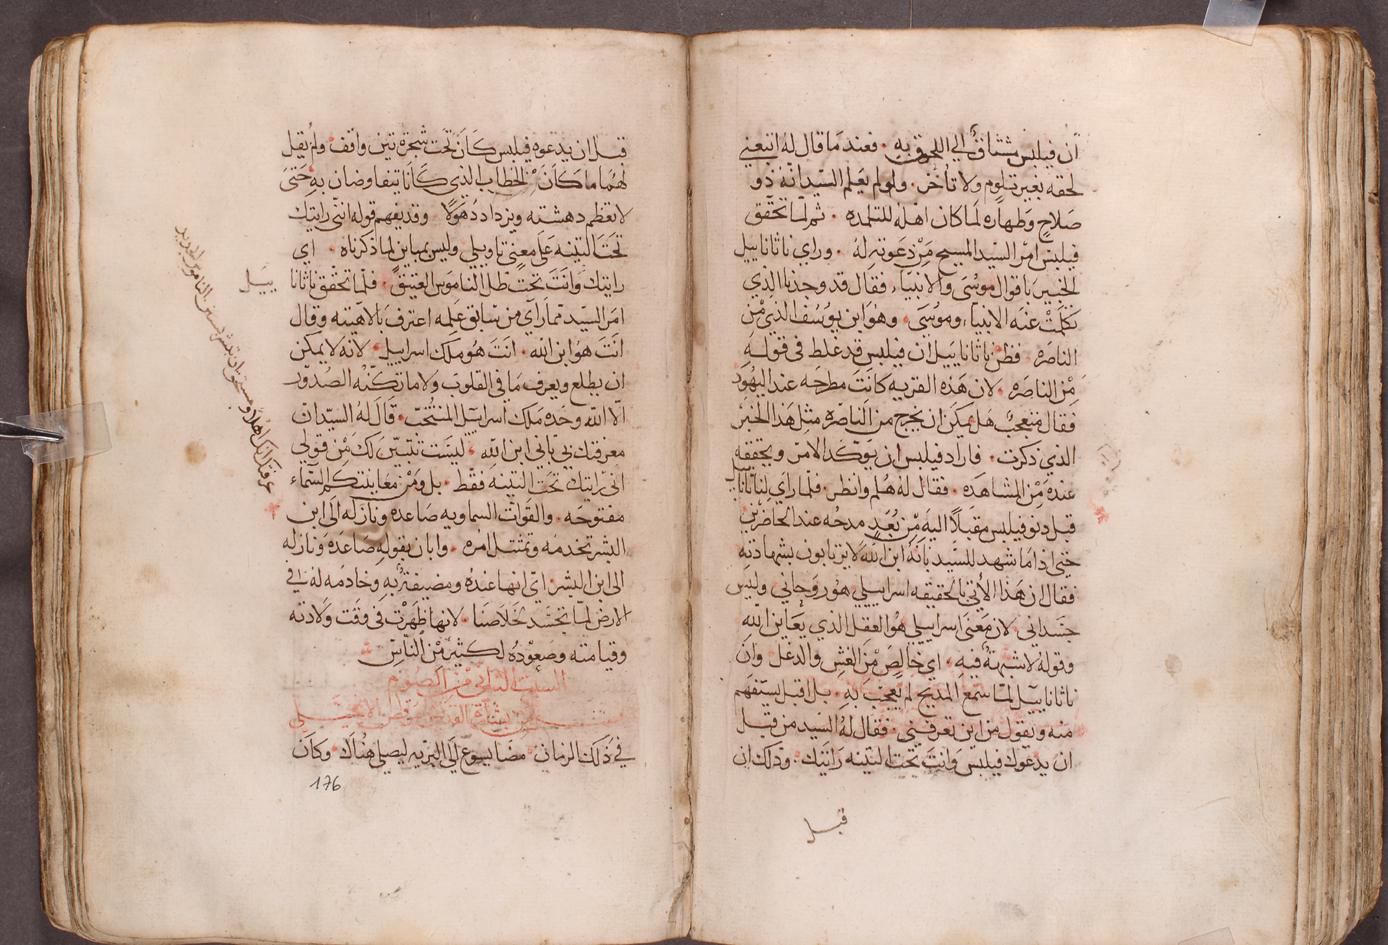 أن فيلبس مشتاق الي اللحوق به . فعند ما قال له اتبعني
لحقه بغير تلوم ولا تأخر . ولو لم يعلم السيد انه ذو
صلاح وطهاره لما كان اهله للتلمده . ثم لما تحقق
فيلبس امر السيد المسيح من دعوته له . وراي ناثانابيل
الخبير باقوال موسى والانبياء . فقال قد وجدنا الذي
تكلمت عنه الانبياء وموسى . وهو ابن يوسف الذي من
الناصره . فظن ناثانابيل أن فيلبس قد غلط في قوله
من الناصره . لان هذه القريه كانت مطرحه عند اليهود
فقال متعجب هل يمكن ان يخرج من الناصره مثل هذا الخبر
الذي ذكرت . فاراد فيلبس ان يوكد الامر ويحققه
عنده من المشاهده . فقال له هلم وانظر . فلما راي لناثانابيل
قبل دنو فيلبس مقبلاً اليه من بعد مدحه عند الحاضرين
حتى اذا ما شهد للسيد بانه ابن الله لا يرتابون بشهادته
فقال ان هذا الأتي بالحقيقه اسراييلي هو روحاني وليس
جسداني . لان معنى اسراييلي هو العقل الذي يعاين الله
وقوله لا شبهة فيه . اي خالص من الغش والدغل وان
ناثانابيل لما سمع المديح لم يعجب به . بل اقبل يستفهم
منه ويقول من اين تعرفني . فقال له السيد من قبل
ان يدعوك فيلبس وانت تحت التينه رايتك . وذلك ان
قبل
قبل ان يدعوه فيلبس كان تحت شجرة تين واقف ولم يقيل
لهما ما كان الخطاب الذي كانا يتفاوضان به حتى
لا تعظم دهشته ويزداد ذهولاً . وقد يفهم قوله انني رايتك
تحت التينه على معنى تاويلي وليس بمباين لما ذكرناه . اي
رايتك وانت تحت ظل الناموس العتيق . فلما تحقق ناثانا
ييل
امر السيد مما راي من سابق علمه اعترف بالاهيته وقال
انت هو ابن الله . انت هو ملك اسراييل . لانه لا يمكن
ان يطلع ويعرف ما في القلوب ولا ما تكنه الصدور
الا الله وحده ملك اسراييل المنتخب . قال له السيد ان
معرفتك بي باني ابن الله . ليست تتبين لك من قولي
اني رايتك تحت التينه فقط . بل ومن معاينتكم السماء
مفتوحه . والقوات السماويه صاعده ونازله الى ابن
البشر تخدمه وتمتثل امره . وابان بقوله صاعده ونازله
الى ابن البشر اي انها عنده ومضيفة به وخادمه له في
الارض لما تجسد لخلاصنا . لانها ظهرت في وقت ولادته
وقيامته وصعوده لكثير من الناس
السبت الثاني من الصوم
في ذلك الزمان . مضا يسوع الى البريه ليصلي هناك . وكان
176